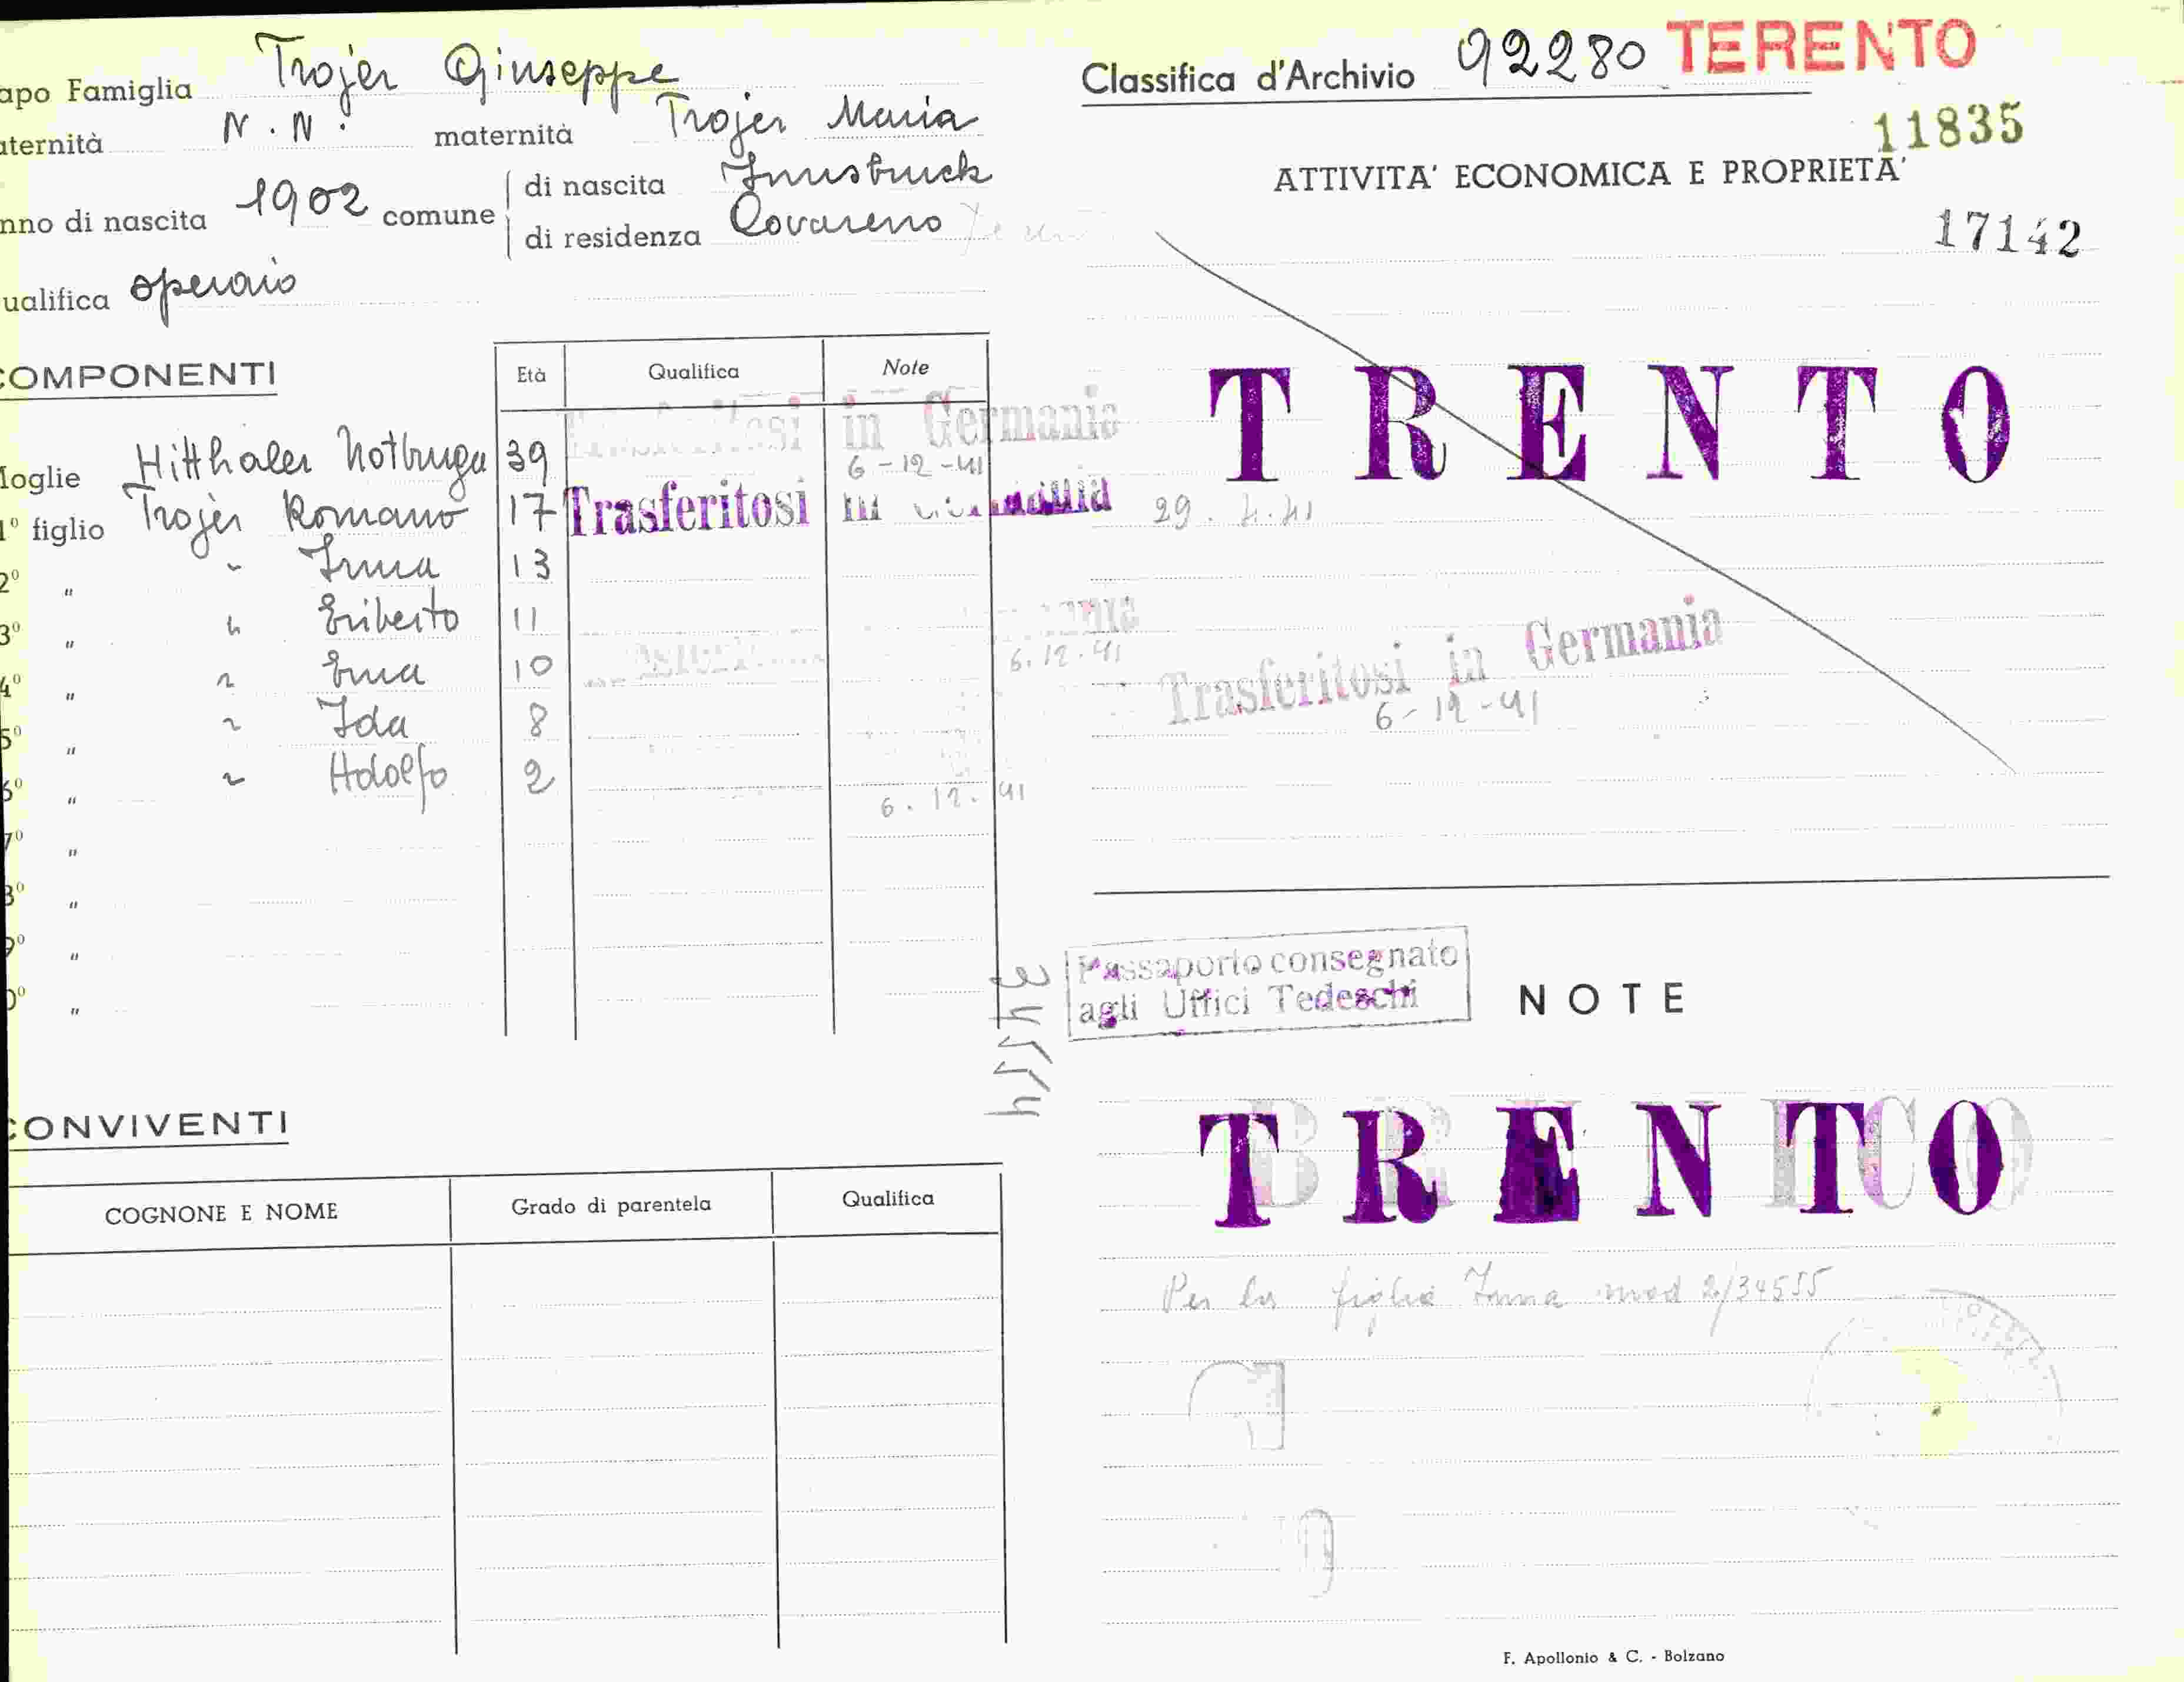 apo Famiglia Trojer Giuseppe
aternità N. N. maternità Trojer Maria
nno di nascita 1902 comune di nascita Innsbruck
di residenza Covareno
ualifica operaio
COMPONENTI
Età Qualifica Note
in Germania
Moglie Hitthaler Notburga 39 6-12-41
1º figlio Trojer Romano 17 Trasferitosi 29. 4. 41
2º " " Irma 13
3º " " Eriberto 11
6.12.41
4º " " Erna 10
5º " " Ida 8
6º " " Adolfo 2
6. 12. 41
7º "
8º "
9º "
0º "
34554
CONVIVENTI
COGNONE E NOME Grado di parentela Qualifica
Classifica d'Archivio 92280 TERENTO
11835
ATTIVITA' ECONOMICA E PROPRIETA'
17142
TRENTO
Trasferitosi in Germania
6-12-41
Passaporto consegnato
agli Uffici Tedeschi
NOTE
TRENTO
Per la figlia Irma mod 2/34555
F. Apollonio & C. - Bolzano